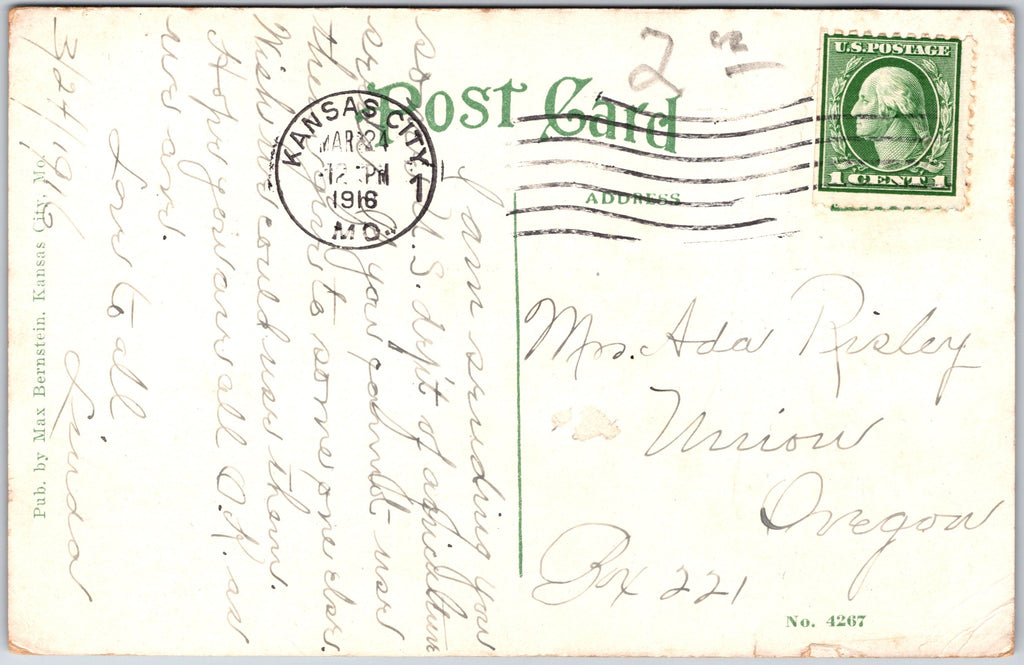 Post Card
2 00
U.S. POSTAGE
1 CENT 1
KANSAS CITY, MO.
MAR 24
12 PM
1916
1
ADDRESS
Mrs. Ada Risley
Union
Oregon
Box 221
No. 4267
3/24/1916
I am sending you
some U.S. dep't of agriculture
seeds. If you cannot use
them give to some one else.
Wish we could use them.
Hope you are all O.K. as
we are.
Love to all
Linda
Pub. by Max Bernstein. Kansas City, Mo.